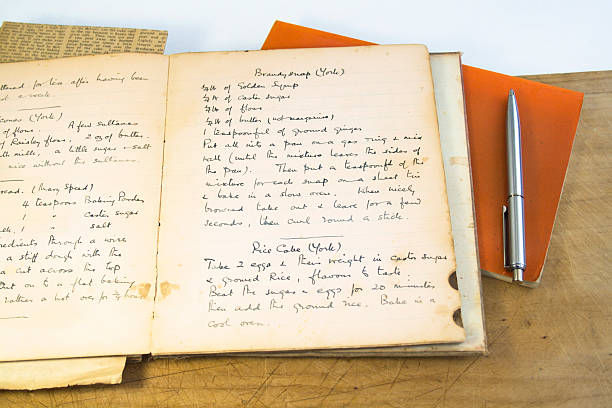 buttered for tea after having been
a week.
Scones (York)
of flour. A few sultanas
of Paisley flour. 2 oz of butter.
with milk, a little sugar & salt
nice without the sultanas.
Bread. (Mary Speed)
4 teaspoons Baking Powder
1 " castor sugar
1 " salt
ingredients through a wire
a stiff dough with the
a cut across the top
Put on to a flat baking
rather a hot oven for 3/4 hour
Brandysnap (York)
¼ lb of Golden Syrup
¼ lb of castor sugar
¼ lb of flour
¼ lb of butter (not margarine)
1 teaspoonful of ground ginger
Put all into a pan on a gas ring & mix
well (until the mixture leaves the sides of
the pan). Then put a teaspoonful of the
mixture for each snap on a sheet tin
& bake in a slow oven. When nicely
browned take out & leave for a few
seconds, then curl round a stick.
Rice Cake (York)
Take 2 eggs & their weight in castor sugar
& ground Rice, flavour to taste.
Beat the sugar & eggs for 20 minutes
then add the ground rice. Bake in a
cool oven.